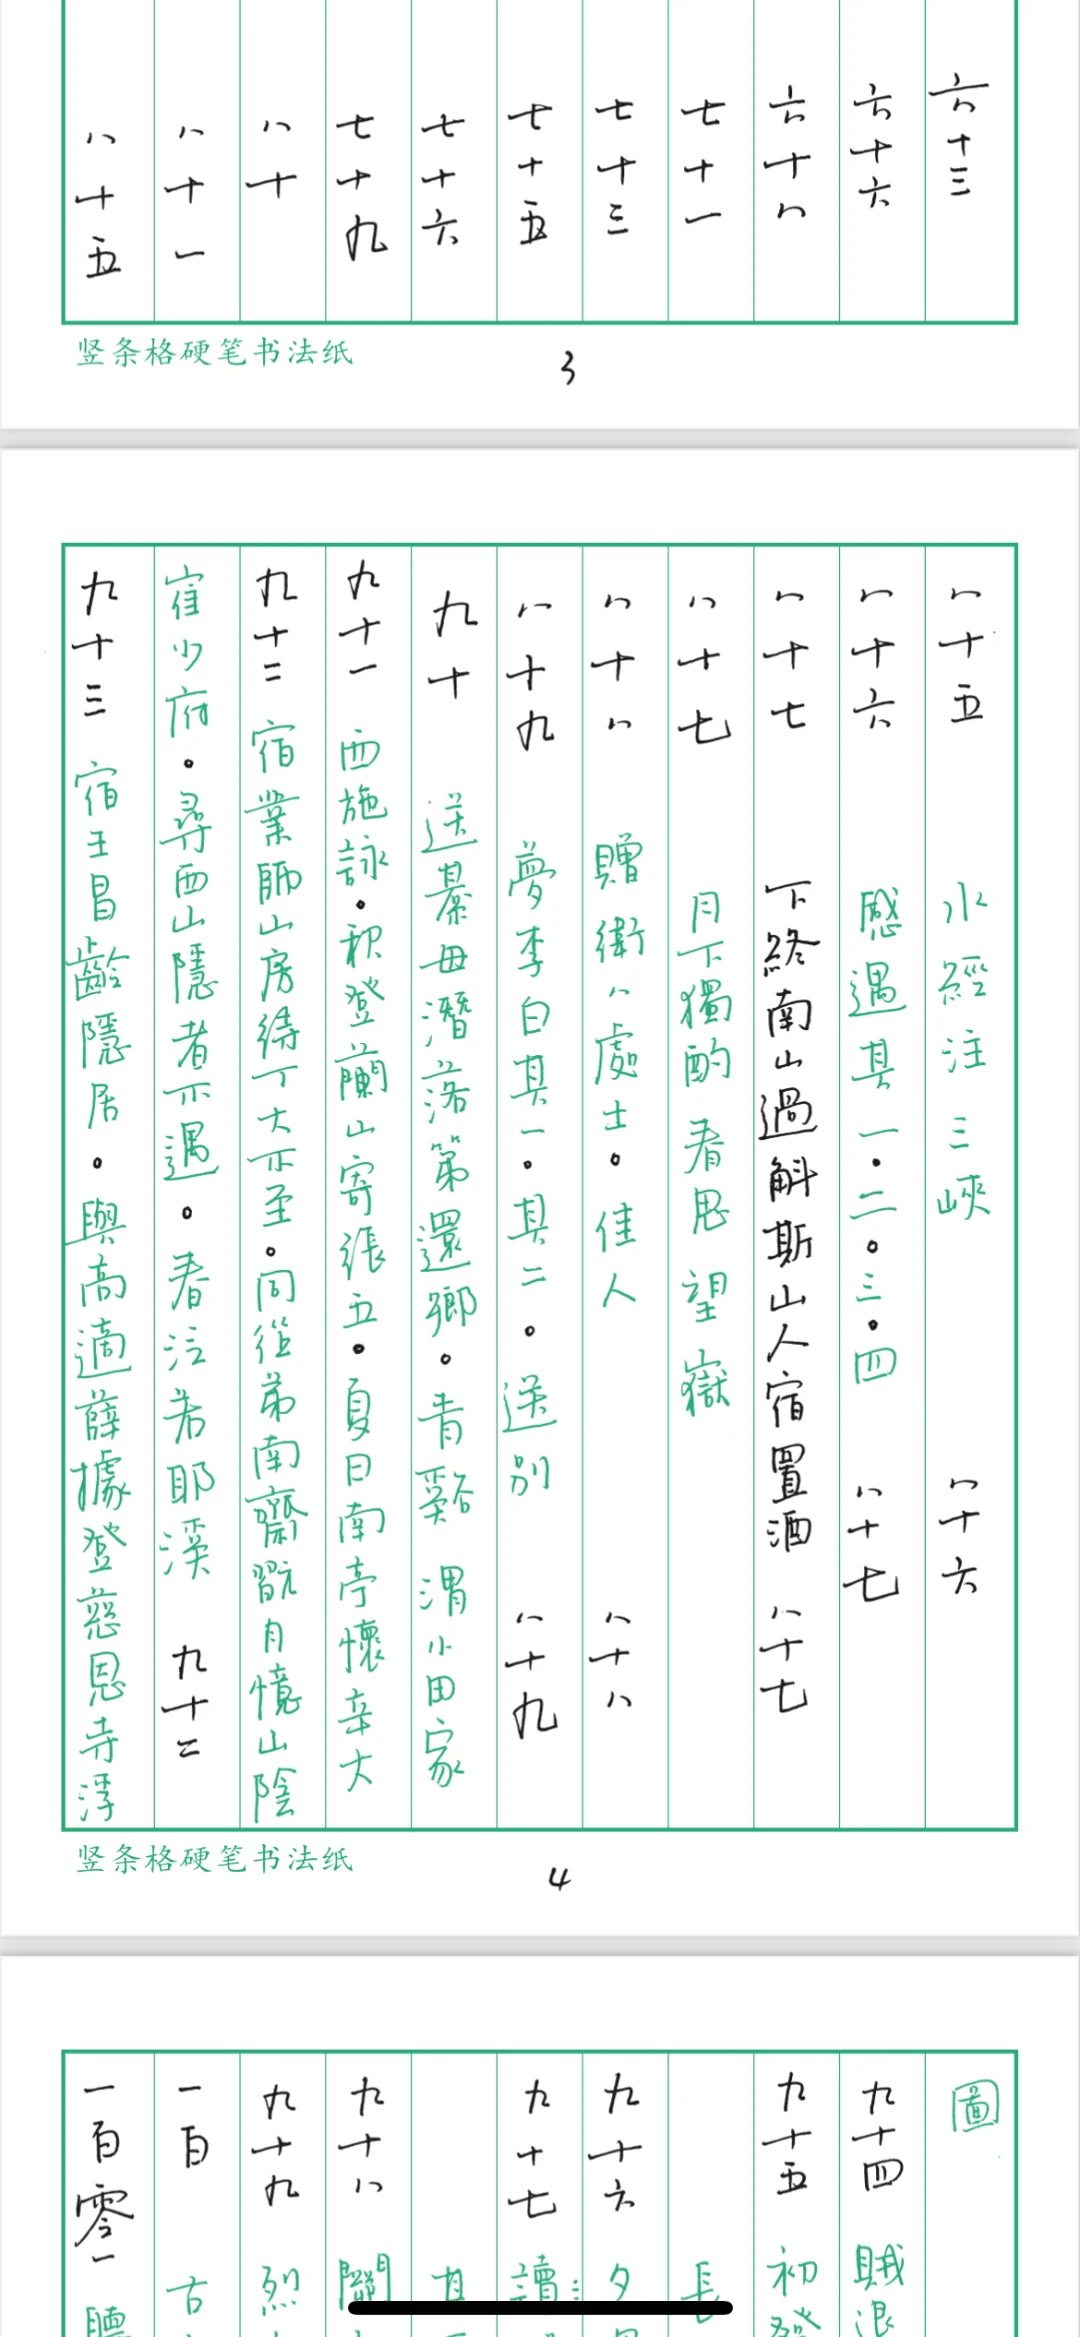 六十三
六十六
六十八
七十一
七十三
七十五
七十六
七十九
八十
八十一
八十五
竖条格硬笔书法纸
3
八十五 水經注 三峽 八十六
八十六 感遇其一。二。三。四 八十七
八十七 下終南山過斛斯山人宿置酒 八十七
八十七 月下獨酌 春思 望嶽
八十八 贈衛八處士。佳人 八十八
八十九 夢李白其一。其二。送別 八十九
九十 送綦毋潛落第還鄉。青谿 渭川田家
九十一 西施詠。秋登蘭山寄張五。夏日南亭懷辛大
九十二 宿業師山房待丁大不至。同從弟南齋翫月憶山陰
崔少府。尋西山隱者不遇。春泛若耶溪 九十二
九十三 宿王昌齡隱居。與高適薛據登慈恩寺浮
竖条格硬笔书法纸
4
圖
九十四 賊退
九十五 初發
長
九十六 夕
九十七 讀
九十八 關
九十九 烈
一百 古
一百零一 聽